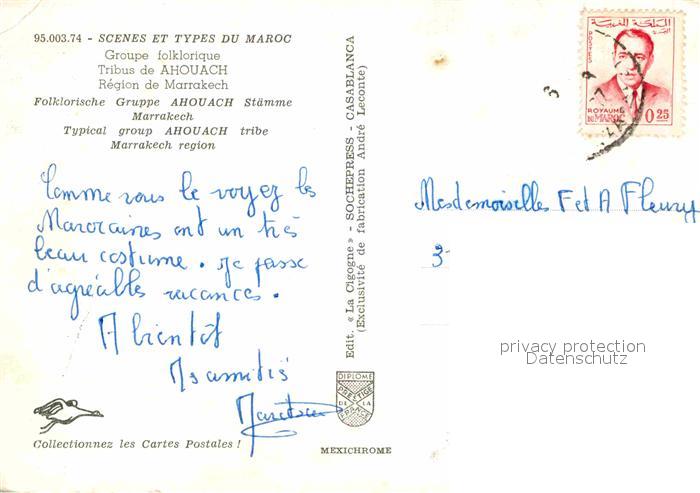 95.003.74 - SCENES ET TYPES DU MAROC
Groupe folklorique
Tribus de AHOUACH
Région de Marrakech
Folklorische Gruppe AHOUACH Stämme
Marrakech
Typical group AHOUACH tribe
Marrakech region
Comme vous le voyez les
Marocaines ont un très
beau costume. Je passe
d'agréables vacances.
A bientôt
Mesdemoiselles F et A Fleury
3-
Edit. « La Cigogne » - SOCHEPRESS - CASABLANCA
(Exclusivité de fabrication André Leconte)
DIPLOME
PRESTIGE
DE LA
FRANCE
Collectionnez les Cartes Postales !
MEXICHROME
المملكة المغربية
POSTES
ROYAUME
DU MAROC
0.25
privacy protection
Datenschutz